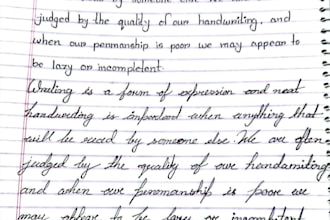 judged by the quality of our handwriting, and
when our penmanship is poor we may appear to
be lazy or incompletent.
Writing is a form of expression and neat
handwriting is important when anything that
will be read by someone else. We are often
judged by the quality of our handwriting
and when our penmanship is poor we
may appear to be lazy or incompetent